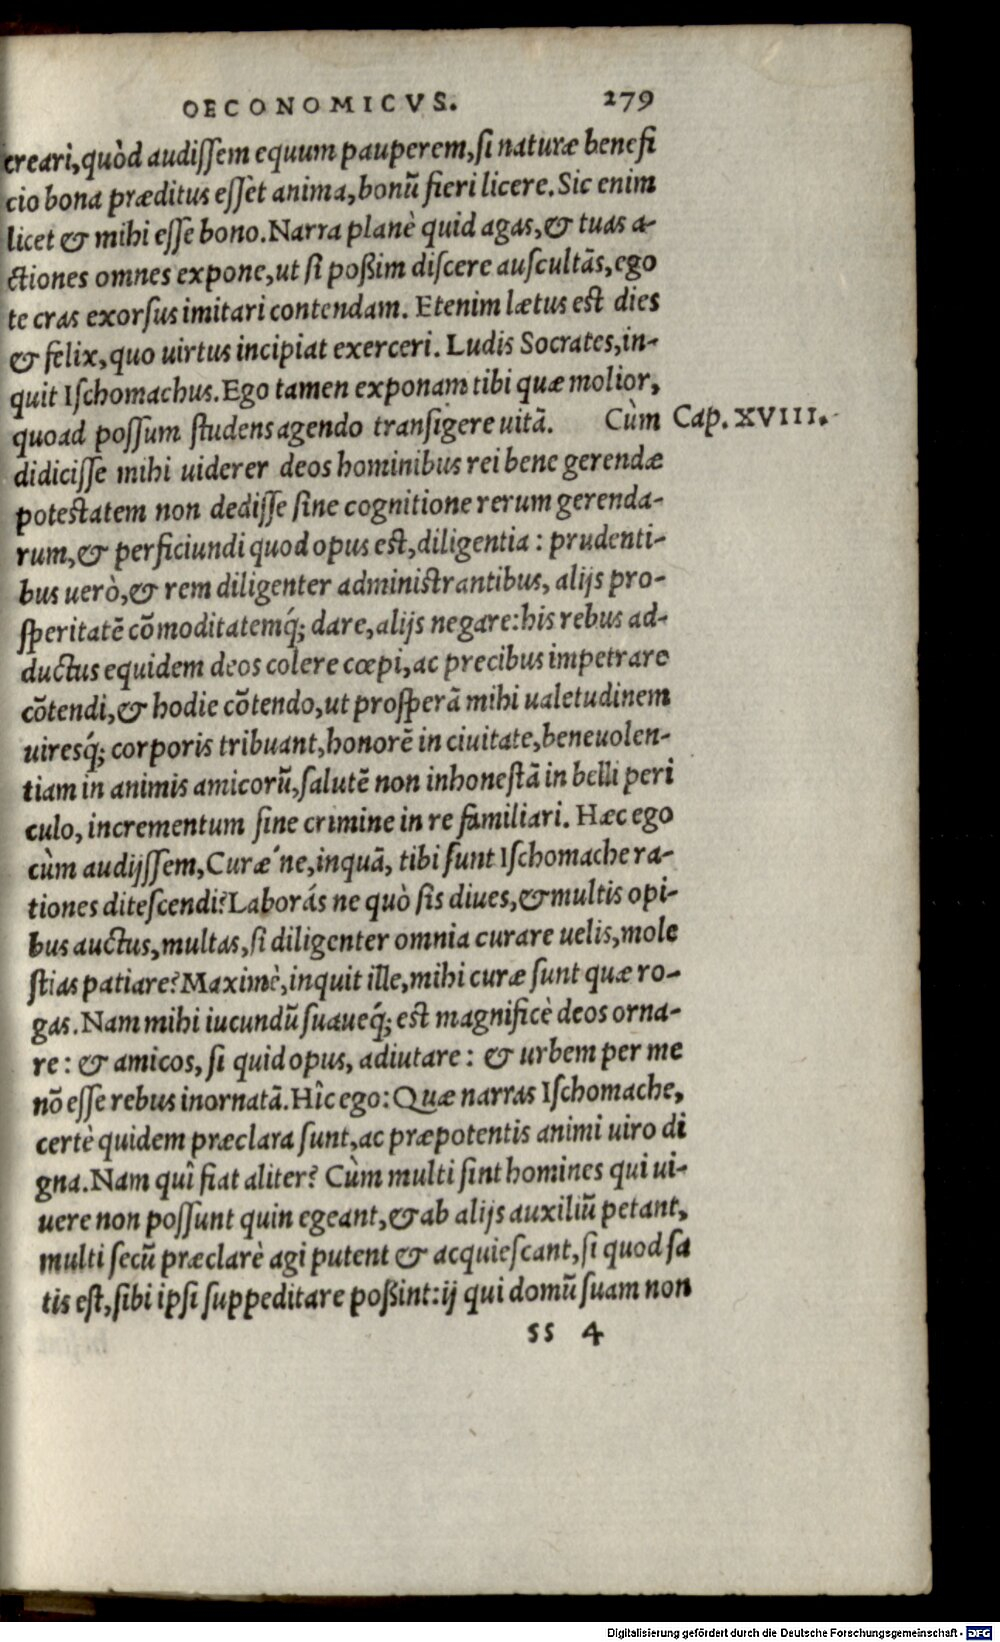 OECONOMICVS. 279
creari, quòd audissem equum pauperem, si naturæ benefi
cio bona præditus essèt anima, bonū fieri licere. Sic enim
licet & mihi esse bono. Narra planè quid agas, & tuas a-
ctiones omnes expone, ut si poßim discere auscultās, ego
te cras exorsus imitari contendam. Etenim lætus est dies
& felix, quo uirtus incipiat exerceri. Ludis Socrates, in-
quit Ischomachus. Ego tamen exponam tibi quæ molior,
quoad possum studens agendo transigere uitā. Cùm Cap. XVIII.
didicisse mihi uiderer deos hominibus rei bene gerendæ
potestatem non dedisse sine cognitione rerum gerenda-
rum, & perficiundi quod opus est, diligentia: prudenti-
bus uerò, & rem diligenter administrantibus, alijs pro-
speritatē cōmoditatemq́; dare, alijs negare: his rebus ad-
ductus equidem deos colere cœpi, ac precibus impetrare
cōtendi, & hodie cōtendo, ut prosperā mihi ualetudinem
uiresq́; corporis tribuant, honorē in ciuitate, beneuolen-
tiam in animis amicorū, salutē non inhonestā in belli peri
culo, incrementum sine crimine in re familiari. Hæc ego
cùm audijssem, Curæ´ne, inquā, tibi sunt Ischomache ra-
tiones ditescendi? Laborás ne quò sis diues, & multis opi-
bus auctus, multas, si diligenter omnia curare uelis, mole
stias patiare? Maximè, inquit ille, mihi curæ sunt quæ ro-
gas. Nam mihi iucundū suaueq́; est magnificè deos orna-
re: & amicos, si quid opus, adiutare: & urbem per me
nō esse rebus inornatā. Hîc ego: Quæ narras Ischomache,
certè quidem præclara sunt, ac præpotentis animi uiro di
gna. Nam quî fiat aliter? Cùm multi sint homines qui ui-
uere non possunt quin egeant, & ab alijs auxiliū petant,
multi secū præclarè agi putent & acquiescant, si quod sa
tis est, sibi ipsi suppeditare poßint: ij qui domū suam non
ss 4
Digitalisierung gefördert durch die Deutsche Forschungsgemeinschaft - DFG